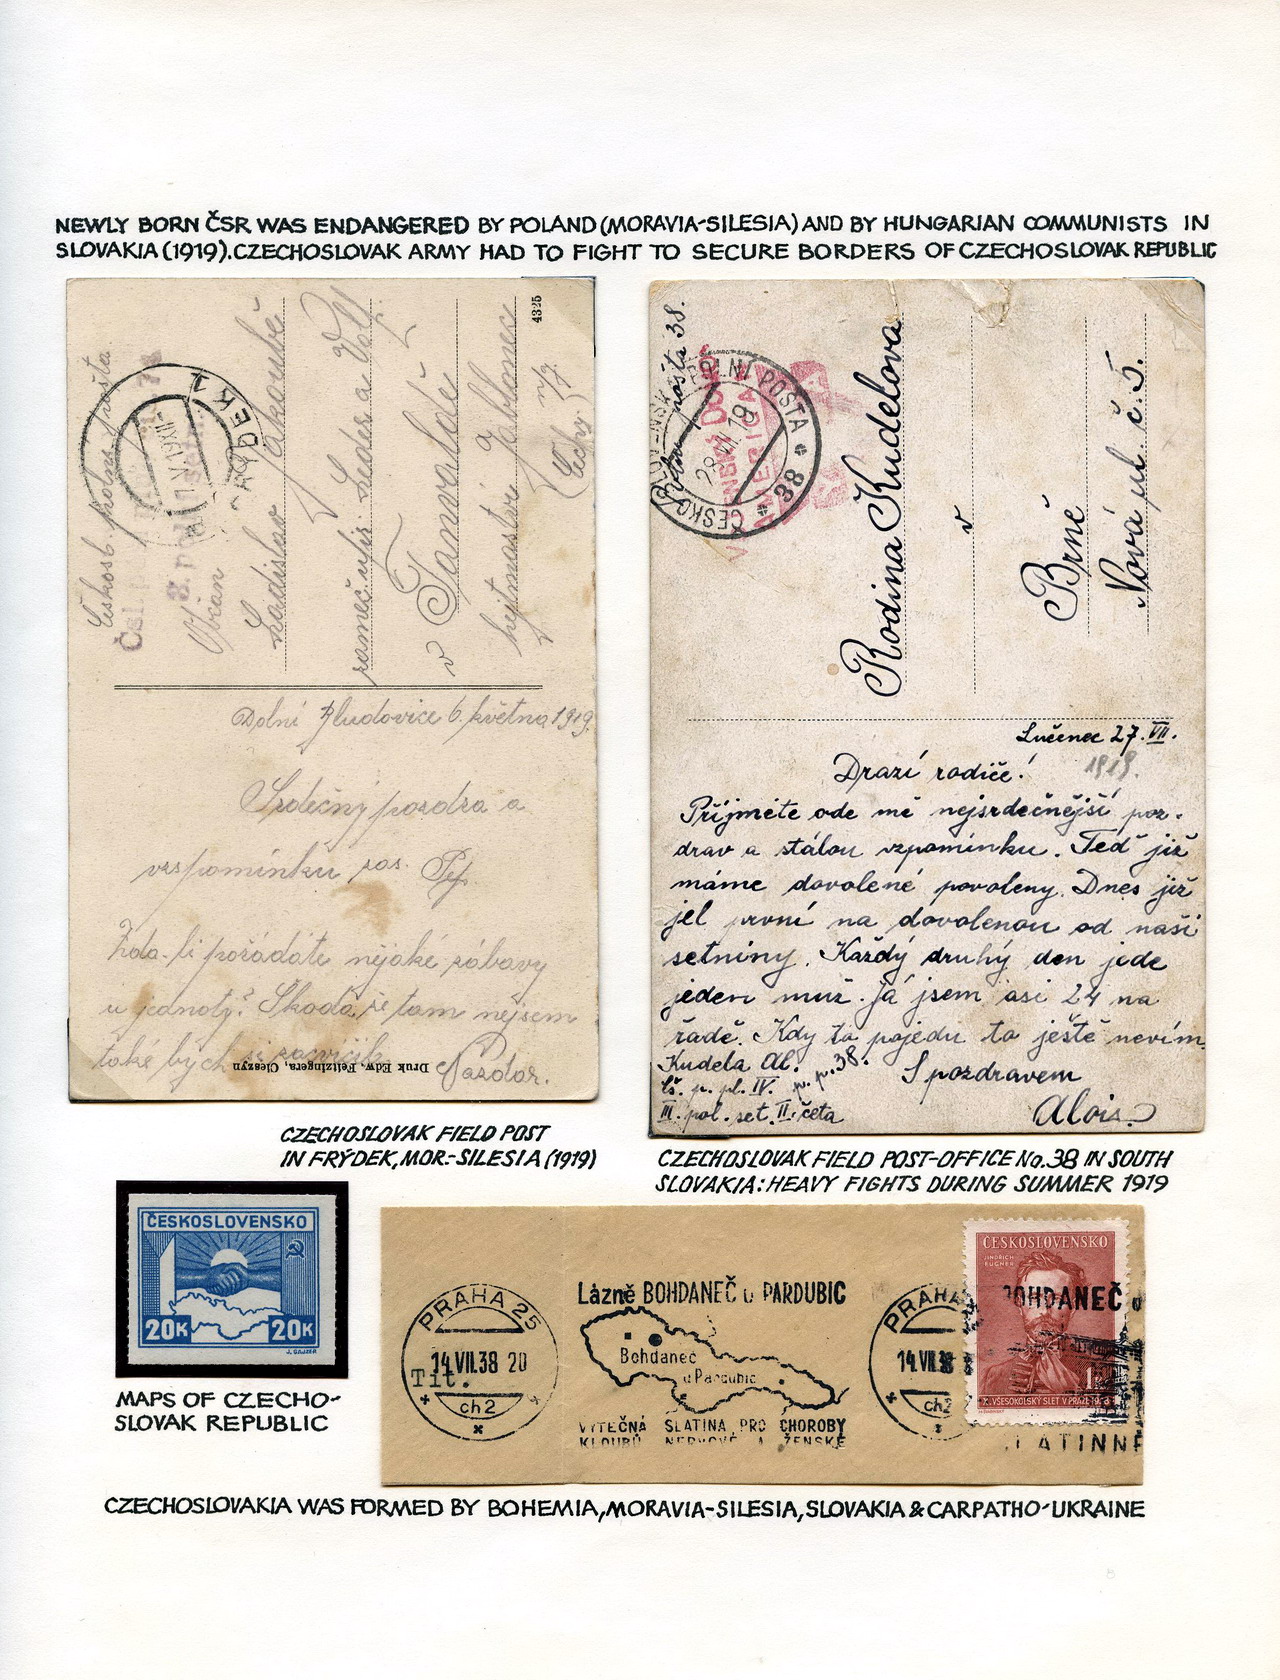 NEWLY BORN ČSR WAS ENDANGERED BY POLAND (MORAVIA-SILESIA) AND BY HUNGARIAN COMMUNISTS IN
SLOVAKIA (1919). CZECHOSLOVAK ARMY HAD TO FIGHT TO SECURE BORDERS OF CZECHOSLOVAK REPUBLIC
Českosl. polní pošta
Občan
Ladislav Jakoubě
v Tanvaldě
hejtmaství Jablonec
n/J
(Čechy)
4325
Dolní Bludovice 6. května 1919.
Srdečný pozdra a
vzspomínku
Zda-li pořádáte nějaké zábavy
u jednoty? Škoda že tam nejsem
také bych si zacvičil.
Nazdar.
Druk Edw. Feitzingera, Cieszyn
polní pošta 38.
POLNÍ POŠTA
28 VII 19
* 38 *
Rodina Kudelova
v
Brně
Nová ul. č. 5.
Lučenec 27. VII.
1919.
Drazí rodiče!
Přijměte ode mě nejsrdečnější poz-
drav a stálou vzpomínku. Teď již
máme dovolené povoleny. Dnes již
jel první na dovolenou od naší
setniny. Každý druhý den jede
jeden muž. Já jsem asi 24 na
řadě. Kdy to pojedu to ještě nevím.
Kudela Al. p.p. 38.
S pozdravem
Čs. p. pl. IV.
III. pol. set. II. četa
Alois
CZECHOSLOVAK FIELD POST
IN FRÝDEK, MOR.-SILESIA (1919)
CZECHOSLOVAK FIELD POST-OFFICE No. 38 IN SOUTH
SLOVAKIA: HEAVY FIGHTS DURING SUMMER 1919
ČESKOSLOVENSKO
20K 20K
MAPS OF CZECHO-
SLOVAK REPUBLIC
PRAHA 25
14.VII.38 20
Tit.
ch2
Lázně BOHDANEČ u PARDUBIC
Bohdaneč
u Pardubic
VÝTEČNÁ SLATINA PRO CHOROBY
KLOUBŮ NERVOVÉ A ŽENSKÉ
PRAHA
14.VII.38
ch2
ČESKOSLOVENSKO
JINDŘICH
FUGNER
BOHDANEČ u
X. VŠESOKOLSKÝ SLET V PRAZE 1938
LATINNÉ
CZECHOSLOVAKIA WAS FORMED BY BOHEMIA, MORAVIA-SILESIA, SLOVAKIA & CARPATHO-UKRAINE